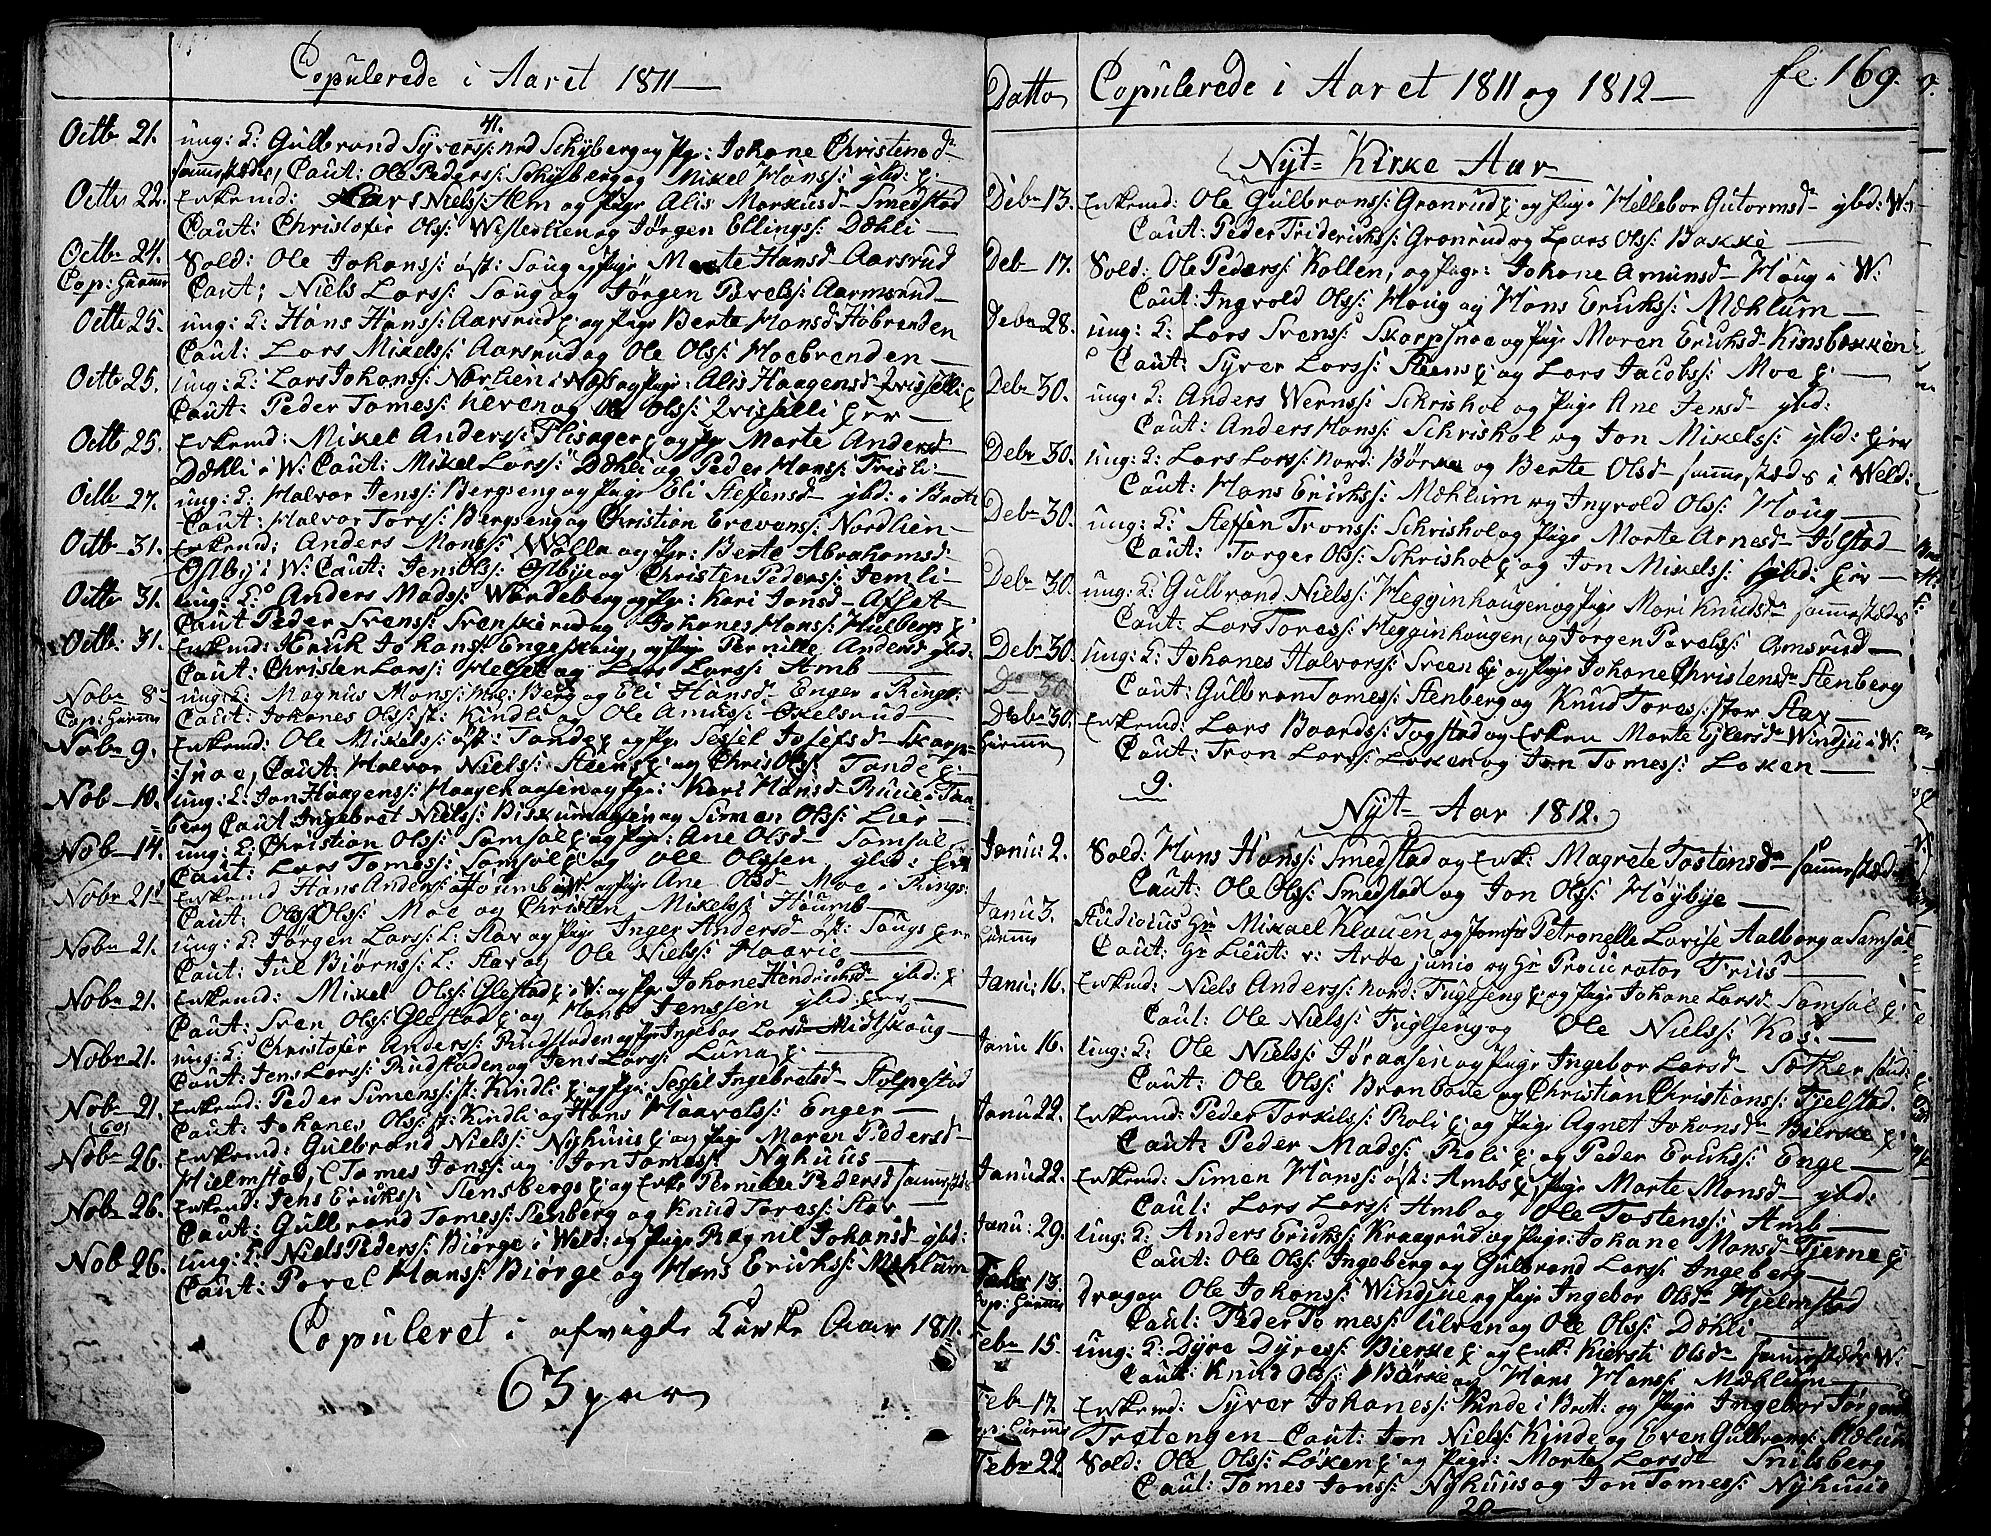 Copulerede i Aaret 1811
Octb 21. ung: K: Gulbrand Syvers: nd Schyberg og Pge: Johane Christensd
sammestædes, Caut: Ole Peders: Schyberg og Mikel Hans: ybd: E:
Octbr 22. Enkemd: Lars Niels: Alm og Pige Alis Markusd Smedstad
Caut: Christofer Ols: Westlelien og Jørgen Ellings: Dæhli
Octbr 24. Sold: Ole Johans: øst: Saug og Pige Marte Hansd Aarsrud
Cop: hiemme Caut: Niels Lars: Saug og Jørgen Povels: Aarmsrud
Octb 25. ung: K: Hans Hans: Aarsrud E: og Pige Berte Hansd Hobrenden
Caut: Lars Mikels: Aarsrud og Ole Ols: Hoebrenden
Octb 25. ung: K: Lars Johans: Nærlien i Næs og Pige: Alis Haagensd
Caut: Peder Tomes: Kleven og Ole Ols:
Octb 25. Enkemd: Mikel Anders: Plisager E: og Pge Marte Andersd
Dæhli i W: Caut: Mikel Lars: Dæhli og Peder Hans: Frisli
Octb 27. ung: K: Halvor Jens: Bergseng og Pige Eli Steffensd ybd: i Brott
Caut: Halvor Tors: Bergseng og Christian Erevans: Nordlien
Octb 31. Enkemd: Anders Mons: Wolla og Pge: Berte Abrahamsd
Østby i W: Caut: Jens Ols: Østbye og Christen Peders: Jemli
Octb 31. ung: K: Anders Mads: Wardeberg og Pge: Kari Jonsd Affset
Caut Peder Svens: Svenskerud og Johanes Hans: Hulbergs E:
Octb: 31. Enkemd: Erick Johans: Engeskaug, og Pige Pernille Andersd ybd:
Caut: Christen Lars: Helset og Lars Lars: Amb
Nobr 8 ung: K: Magnus Mons: Berg og Eli Hansd Enger i Rings:
Cop: hiemme Caut: Johanes Ols: st: Kindli og Ole Amus: Økelsrud
Nobr 9. Enkemd: Ole Mikels: øst: Tande E: og Pge Sessel Josefsd Skarp-
snoe, Caut: Halvor Niels: Steens E: og Chris Ols: Tande E:
Nob 10. ung: K: Jon Haagens: Haagehaasen og Pge: Kari Hansd Rüüe i Taa-
berg Caut Ingebret Niels: Biskumhagen og Simen Ols: Lier
Nob 14. ung: K: Christian Ols: Samsal E: og Pge: Ane Olsd Samsal
Caut: Lars Tomes: Samsal E: og Ole Olssen ybd:
Nobr 21 Enkemd Hans Anders: Houmb øst: og Pige Ane Olsd Moe i Rings:
Caut: Ols Ols: Moe og Christen Mikels: Houmb
Nobr 21. ung: K: Jørgen Lars: L: Stav og Pige Inger Andersd øst: Saugs
Caut: Jul Biørns: L: Stav og Ole Niels: Haarie
Nobr 21. Enkemd: Mikel Ols: Glestad E: i W: og Pge Johane Hendriksd ybd: E:
Caut: Sven Ols: Glestad E: og Hans Jenssen ybd:
Nobr 21. ung: K: Christofer Anders: Rudstaden og Pge Ingebor Larsd Midtskoug
Caut: Jens Lars: Rudstaden og Jens Lars: Luna E:
Nob 21. Enkemd: Peder Simens: st: Kindli E: og Pge: Sessel Ingebretsd Stolpestad
(60) Caut: Johanes Ols: st: Kindli og Hans Haavels: Enger
Nobr 26. Enkemd: Gulbrand Niels: Nyhuus E: og Pige Maren Pedersd
Hielmstad, C Tomes Jons: og Jon Tomes: Nyhuus
Nob 26. Enkemd: Jens Eriks: Stensbergs E: og Enke Pernille Pedersd sammestæds
Caut: Gulbrand Tomes: Stenberg og Knud Tores: Stav
Nob 26. ung: K: Niels Peders: Biørge i Weld: og Pige Ragnil Johansd ybd:
Caut: Povel Hans: Biørge og Hans Erichs: Mæhlum
Copuleret i afvigte Kirke Aar 1811.
63 par
Datto Copulerede i Aaret 1811 og 1812 fl: 169.
Nyt Kirke Aar
Debr 13. Enkemd: Ole Gulbrans: Grønrud E: og Pige Hellebor Gutormsd ybd: W:
Caut: Peder Friderichs: Grønrud og Lars Ols: Bakke
Deb 17. Sold: Ole Peders: Kollen, og Pige: Johane Amunsd Houg i W:
Caut: Ingvold Ols: Houg og Hans Erichs: Mæhlum
Debr 28. ung: K: Lars Svens: Skarpsnoe og Pige Maren Erichsd Kinsbakken
Caut: Syver Lars: Steens E: og Lars Jacobs: Moe E:
Deb 30. ung: K: Anders Werns: Schrishol og Pige Ane Jensd ybd:
Caut: Anders Hans: Schrishol og Jon Mikels: ybd:
Deb 30. ung: K: Lars Lars: nord: Børke og Berte Olsd sammestæds i Weld:
Caut: Hans Erichs: Mæhlum og Ingvold Ols: Houg
Deb 30. ung: K: Steffen Trons: Schrishol og Pige Marte Arnesd Jølstad
Caut: Torger Ols: Schrishol E: og Jon Mikels: ybd:
Deb 30. ung: K: Gulbrand Niels: Hegginhaugen og Pige Mari Knudsd sammestædes
Caut: Lars Tores: Hegginhaugen, og Jørgen Povels: Amsrud
Deb 30. ung: K: Johanes Halvors: Sveen E: og Pige Johane Christensd Stenberg
D 30. Caut: Gulbran Tomes: Stenberg og Knud Tores: stor Stav
Debr 30. Enkemd: Lars Baards: Togstad og Enken Marte Ejlersd Windju i W:
hiemme Caut: Tron Lars: Loken og Jon Tomes: Loken
9.
Nyt Aar 1812.
Janu: 2. Sold: Hans Hans: Smedstad og Enk: Magrete Tostensd sammestæds
Caut: Ole Ols: Smedstad og Jon Ols: Høybye
Janu 3. Studiosus Hr Mikael Klouen og Jomfr Petronelle Lovise Aalborg a Samsal
hiemme Caut: Hr Lieut: v: Arbe junio og Hr Procurator Friis
Janu: 16. Enkemd: Niels Anders: nord: Fuglseng E: og Pige Johane Larsd Samsal E:
Caut: Ole Niels: Fuglseng og Ole Niels: Kos:
Janu 16. ung: K: Ole Niels: Jøraasen og Pige Ingebor Larsd Sætker
Caut: Ole Ols: Brenbone og Christian Christians: Fjelstad.
Janu 22. Enkemd: Peder Torkils: Roli E: og Pige Agnet Johansd Bierke E:
Caut: Peder Mads: Roli E: og Peder Erichs: Enge
Janu 22. Enkemd: Simen Hans: øst: Ambs E, Pige Marte Monsd ybd:
Caut: Lars Lars: Amb og Ole Tostens: Amb
Janu: 29. ung: K: Anders Erichs: Kraagrud og Pige: Johane Monsd Tjerne E:
Caut: Ole Ols: Ingeberg og Gulbrand Lars: Ingeberg
Feb 13. dragon Ole Johans: Windjue og Pige Ingebor Olsd Hjelmstad
Cop: hiemme Caut: Peder Tomes: Ulven og Ole Ols: Dæhli
Febr 15. ung: K: Dyre Dyres: Bierke E: og Enk: Kiersti Olsd sammestæds W:
Caut: Knud Ols: Børke og Hans Hans: Mæhlum
Feb 17. Enkemd: Syver Johanes: Kinde i Brott: og Pige Ingebor Jørgensd
hiemme Tretengen Caut: Jon Niels: Kinde og Even Gulbrans: Mælum
Febr 22. Sold: Ole Ols: Løken E: og Pige: Marte Larsd Snilsberg
Caut: Tomes Jons: Nyhuus og Jon Tomes: Nyhuus
20